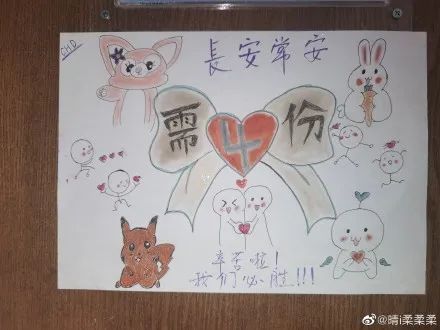 CHD
長安常安
需4份
辛苦啦！
我们必胜!!!
@晴i柔柔柔